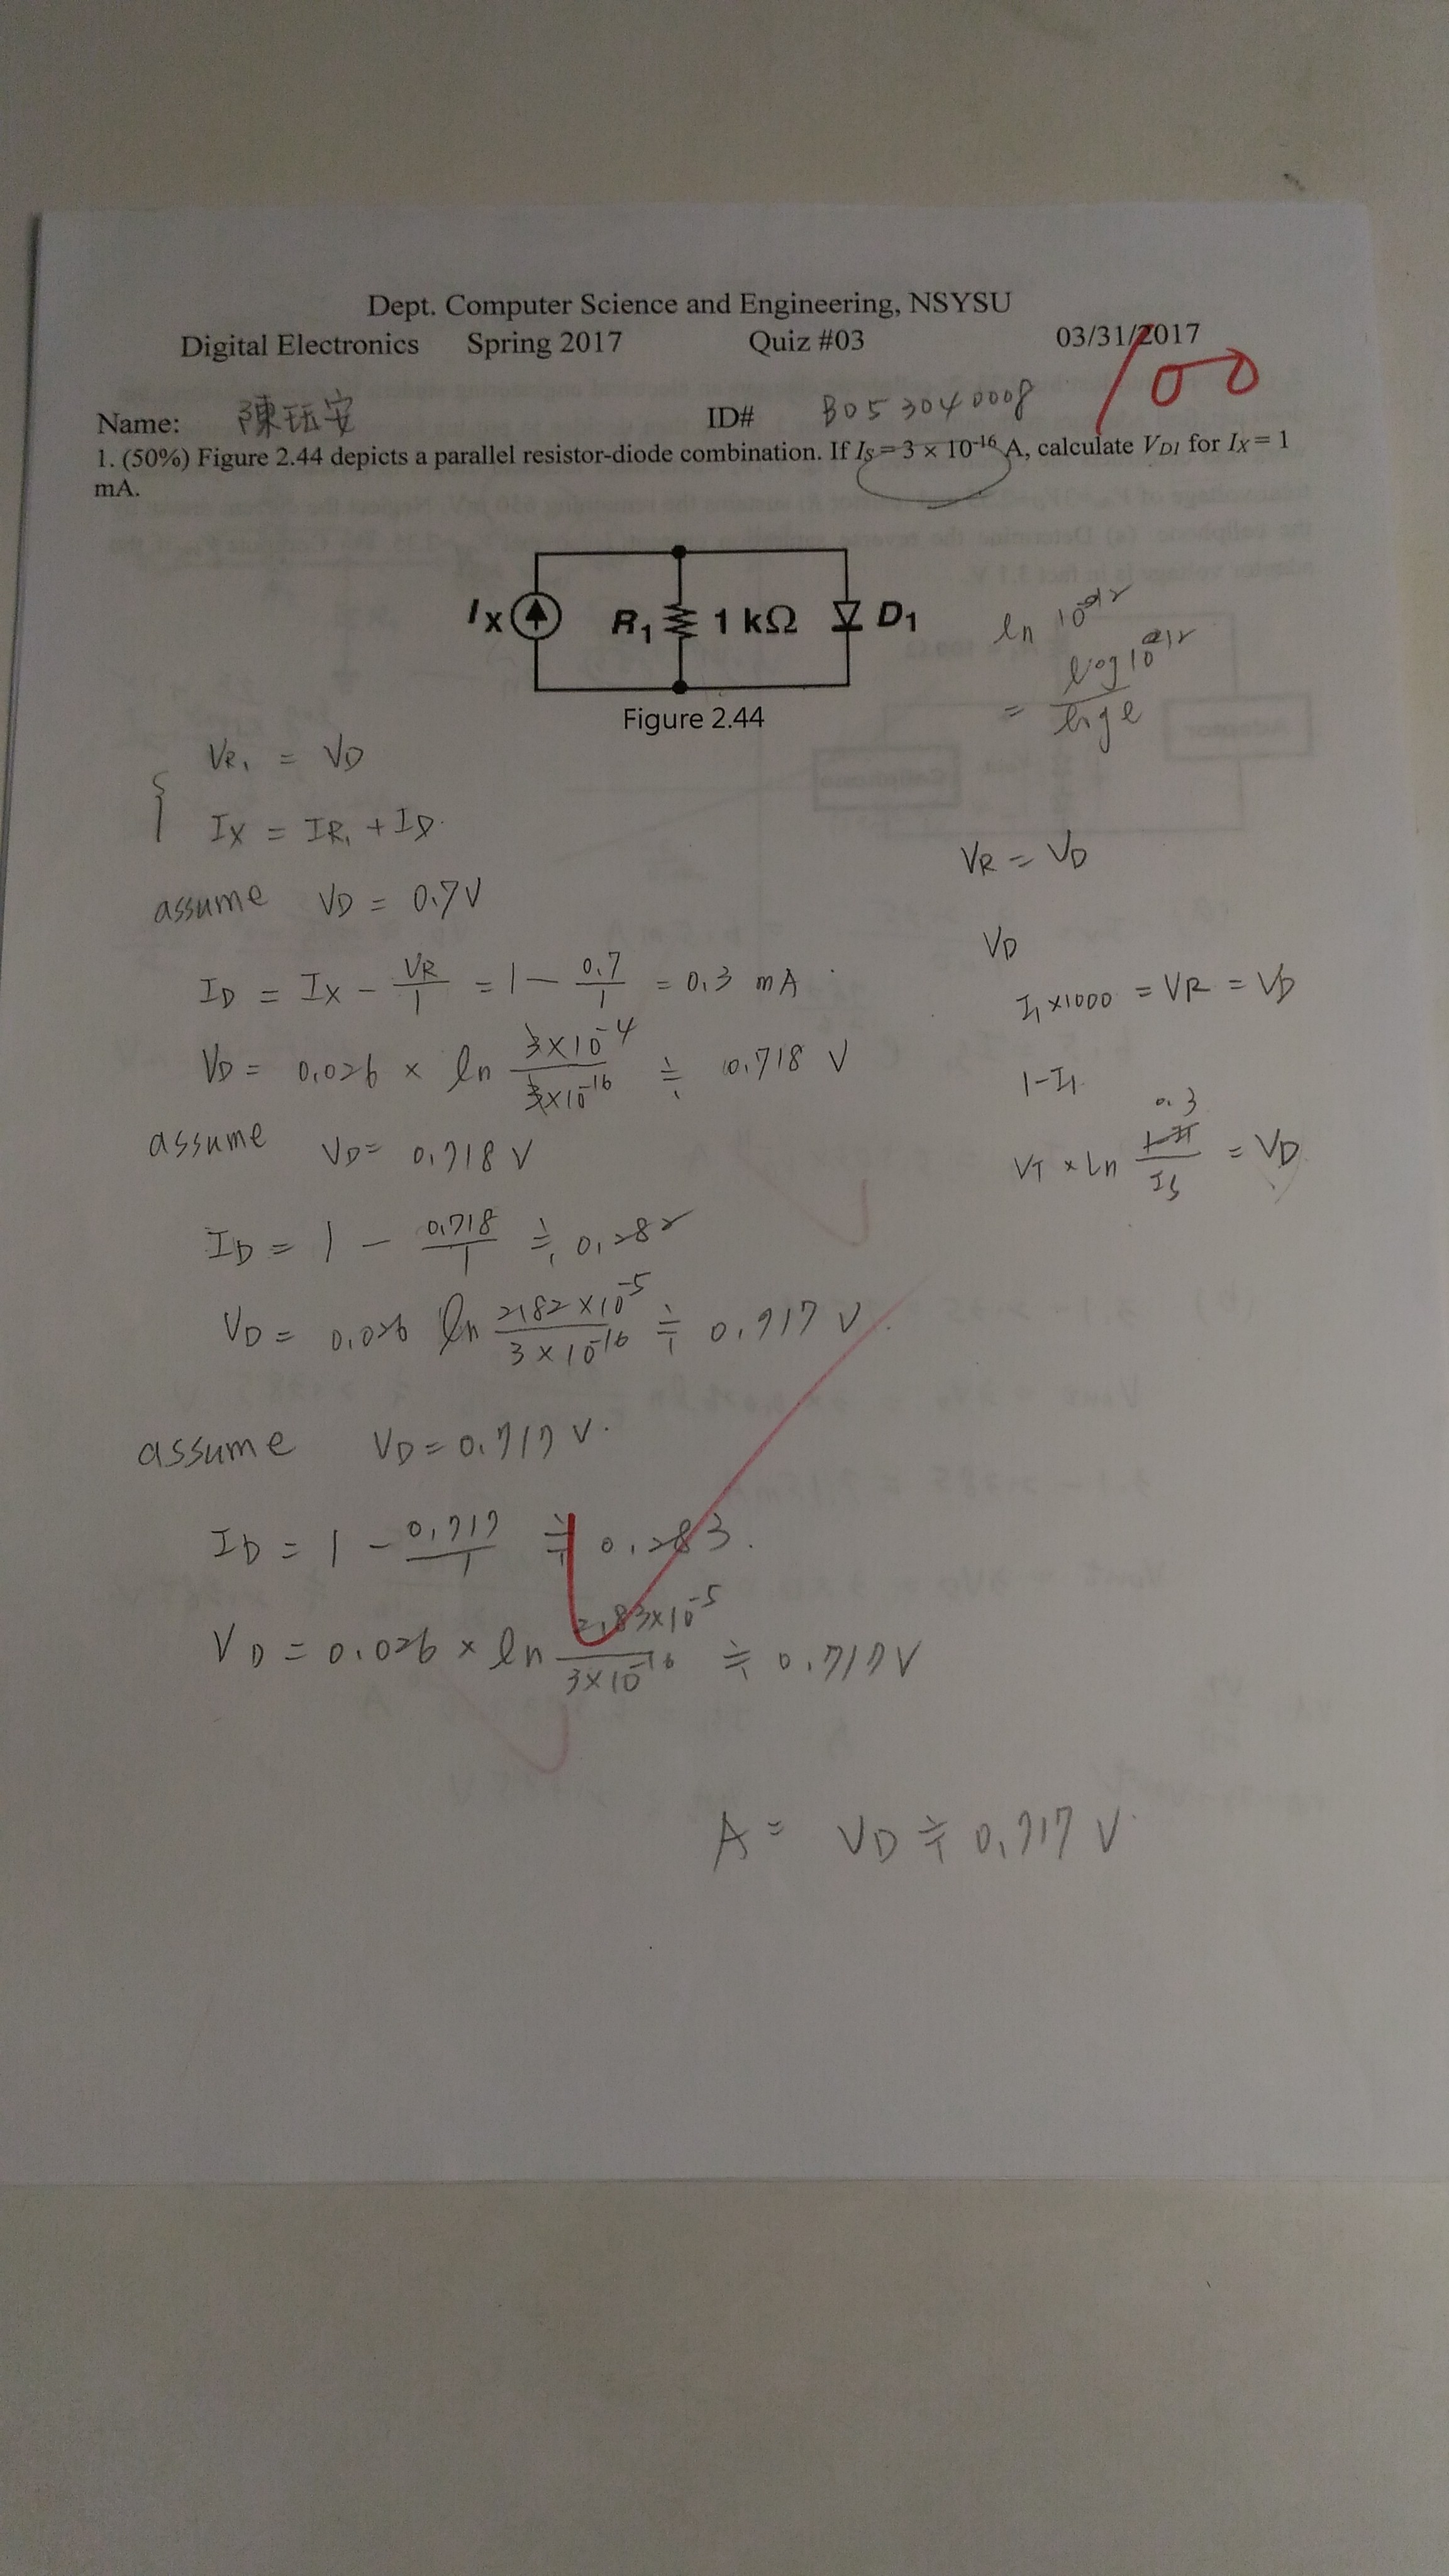 Dept. Computer Science and Engineering, NSYSU
Digital Electronics Spring 2017 Quiz #03 03/31/2017
100
Name: 陳珏安 ID# B053040008
1. (50%) Figure 2.44 depicts a parallel resistor-diode combination. If IS = 3 × 10^-16 A, calculate VD1 for IX = 1
mA.
IX R1 1 kΩ D1
Figure 2.44
ln 10^12
= log10^12 / log e
VR1 = VD
IX = IR1 + ID
assume VD = 0.7V
ID = IX - VR/1 = 1 - 0.7/1 = 0.3 mA
VD = 0.026 × ln 3×10^-4 / 3×10^-16 ≒ 0.718 V
assume VD = 0.718 V
ID = 1 - 0.718/1 ≒ 0.282
VD = 0.026 ln 2.82×10^-5 / 3×10^-16 ≒ 0.717 V.
assume VD = 0.717 V.
ID = 1 - 0.717/1 ≒ 0.283.
VD = 0.026 × ln 2.83×10^-5 / 3×10^-16 ≒ 0.717 V
A = VD ≒ 0.717 V
VR = VD
VD
I1 ×1000 = VR = VD
1-I1
0.3
VT × ln 1-I1 / IS = VD